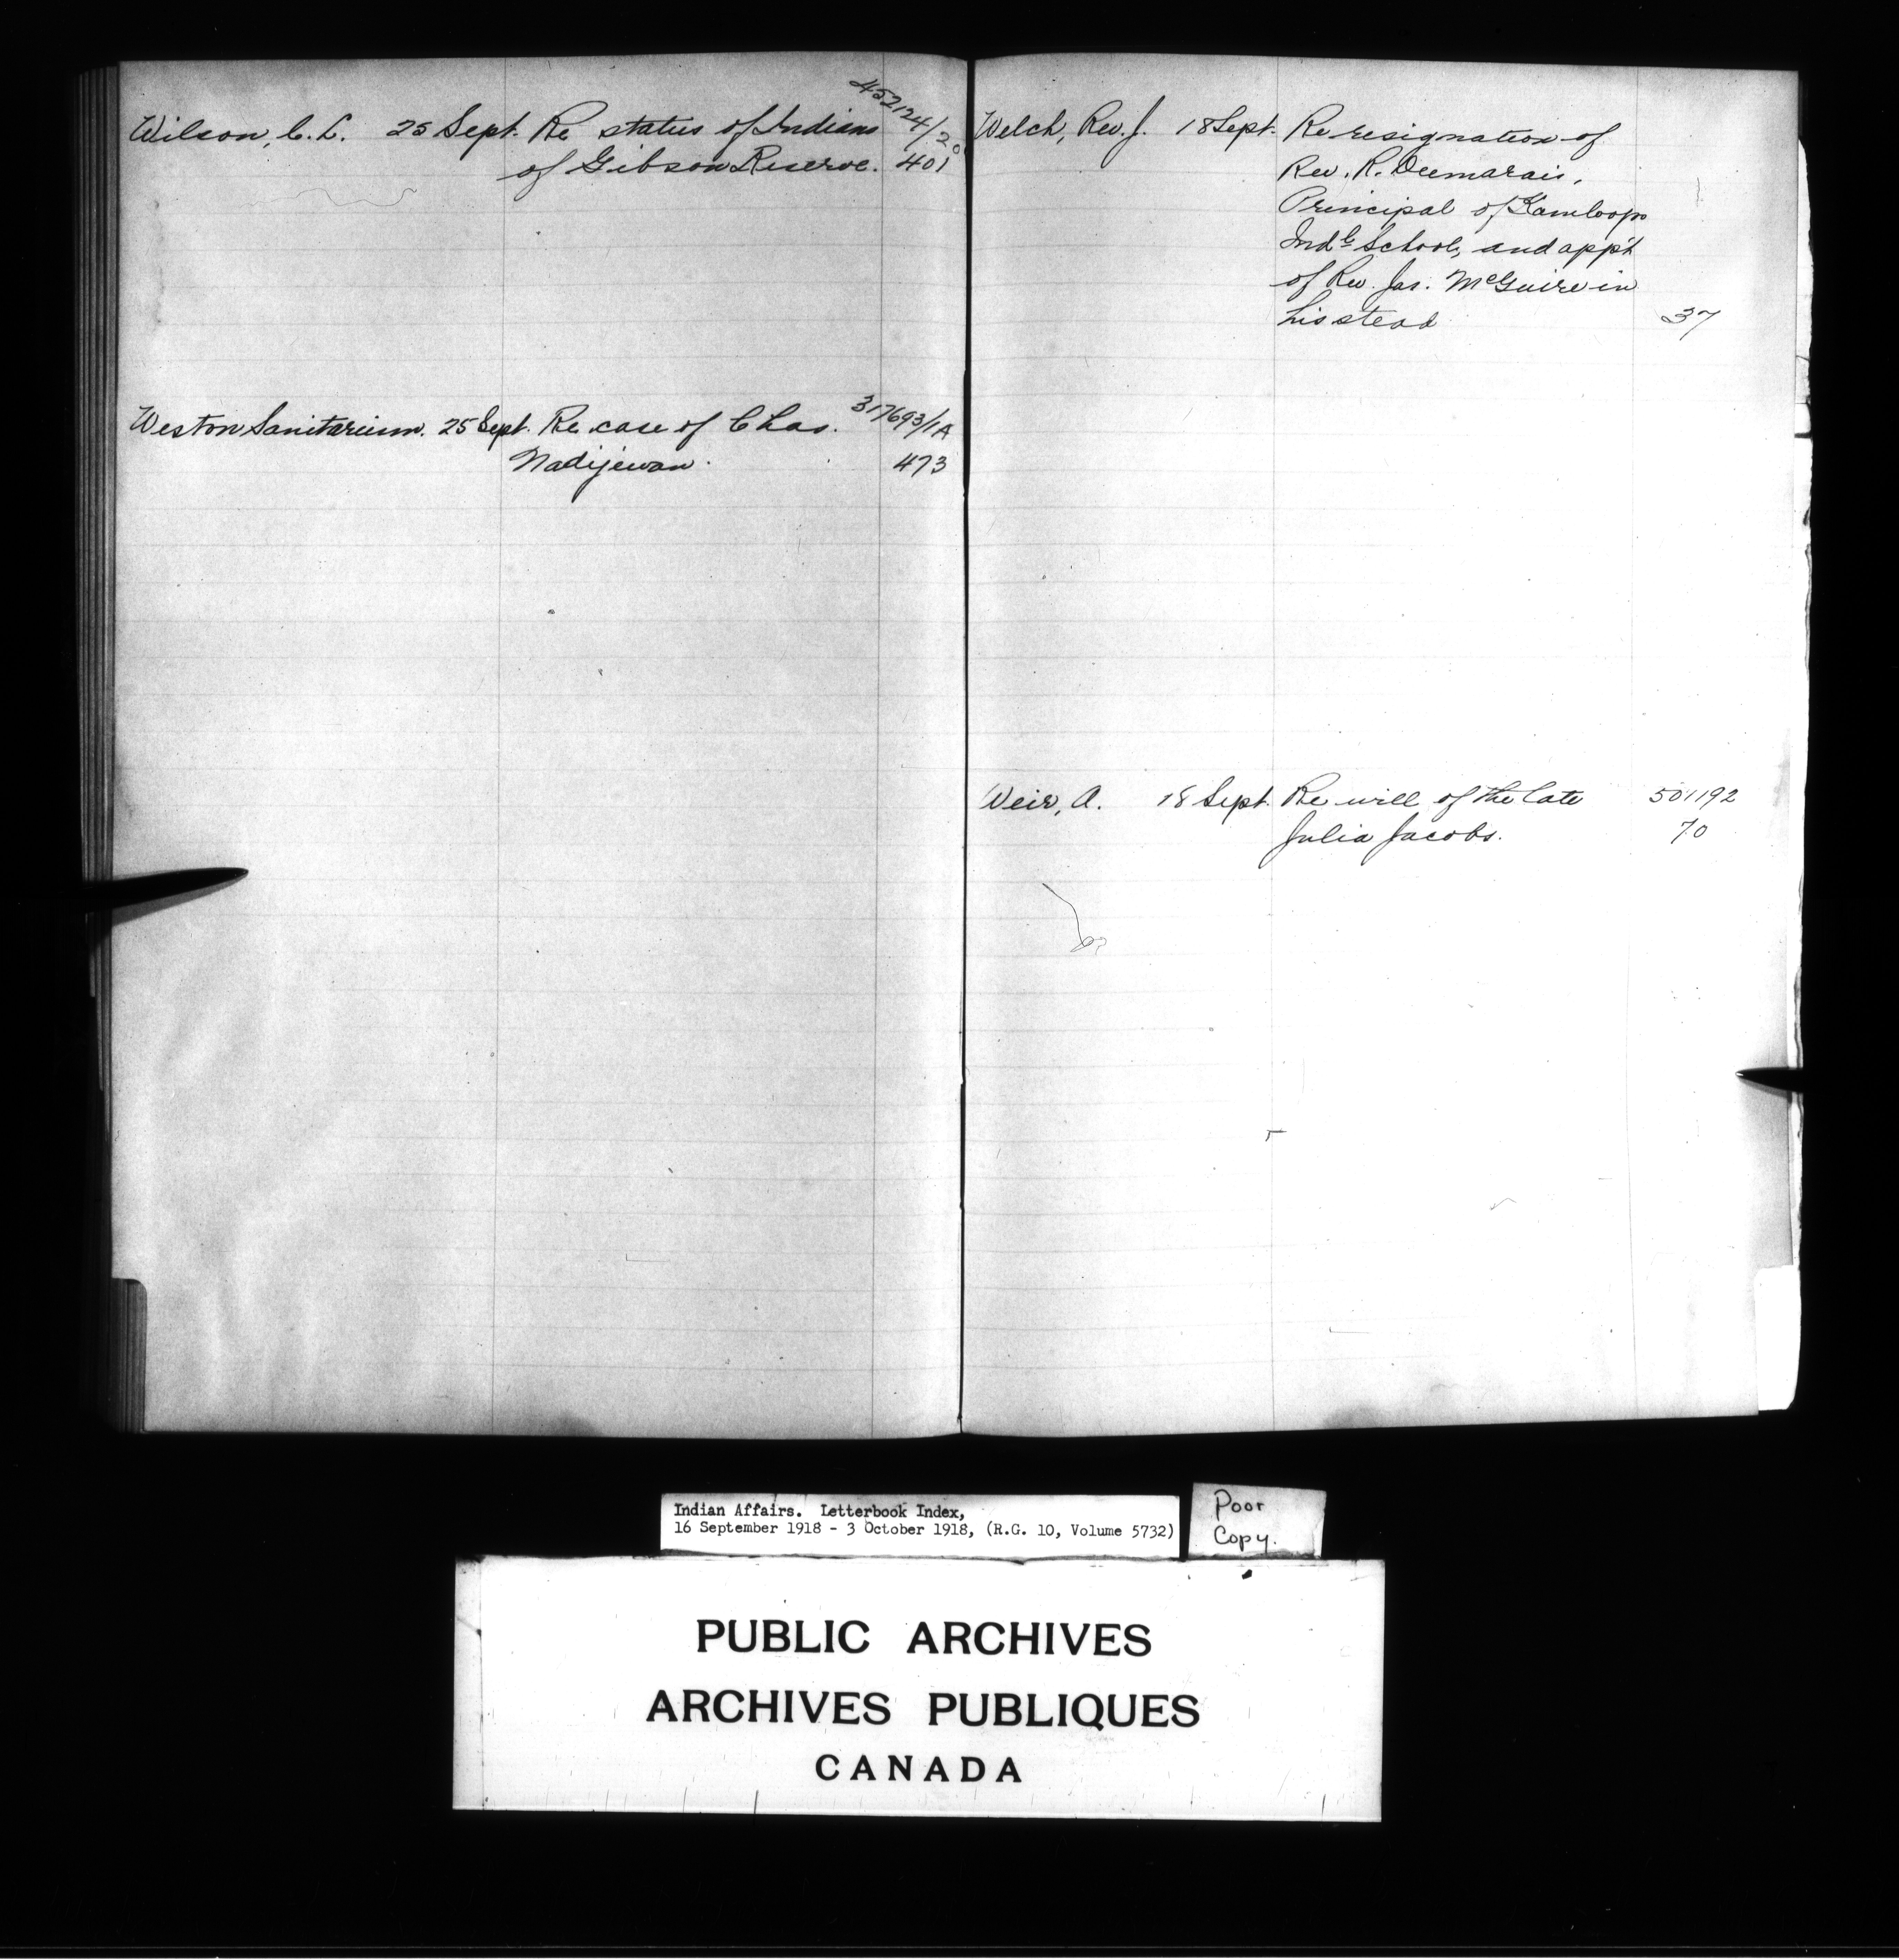 Wilson, C. L. 25 Sept. Re status of Indians 452124/20
of Gibson Reserve. 401
Weston Sanitarium. 25 Sept. Re case of Chas. 317693/1A
Nadijewan. 473
Welch, Rev. J. 18 Sept. Re resignation of
Rev. R. Desmarais,
Principal of Kamloops
Indl School, and app't
of Rev. Jas. McGuire in
his stead 37
Weir, A. 18 Sept. Re will of the late 501192
Julia Jacobs. 70
Indian Affairs. Letterbook Index,
16 September 1918 - 3 October 1918, (R.G. 10, Volume 5732)
Poor
Copy.
PUBLIC ARCHIVES
ARCHIVES PUBLIQUES
CANADA